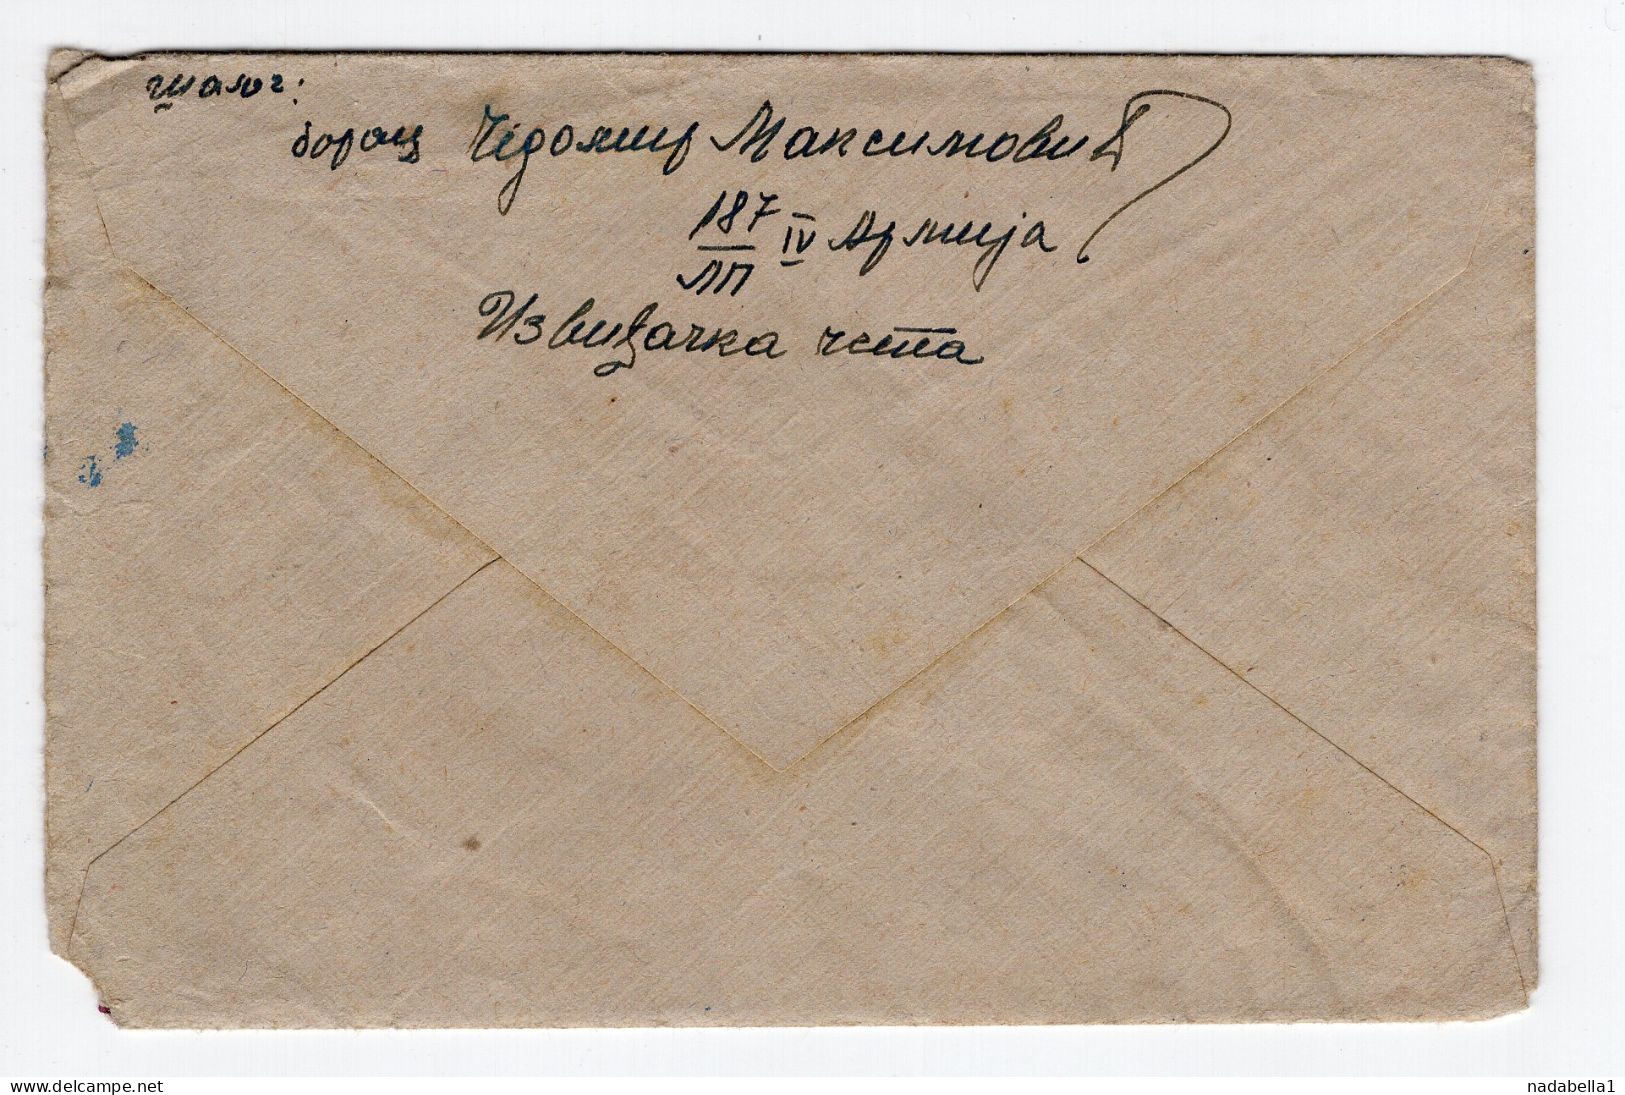 шаљ:
борац Чедомир Максимовић
187 IV Армија
ЛП
Извиђачка чета
www.delcampe.net
nadabella1